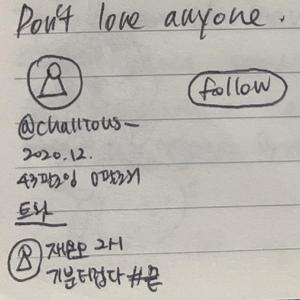 Don't love anyone.
follow
@challtous_
2020.12.
43팔로잉 0팔로워
트윗
재윤모 2시
기분더럽다 #끝